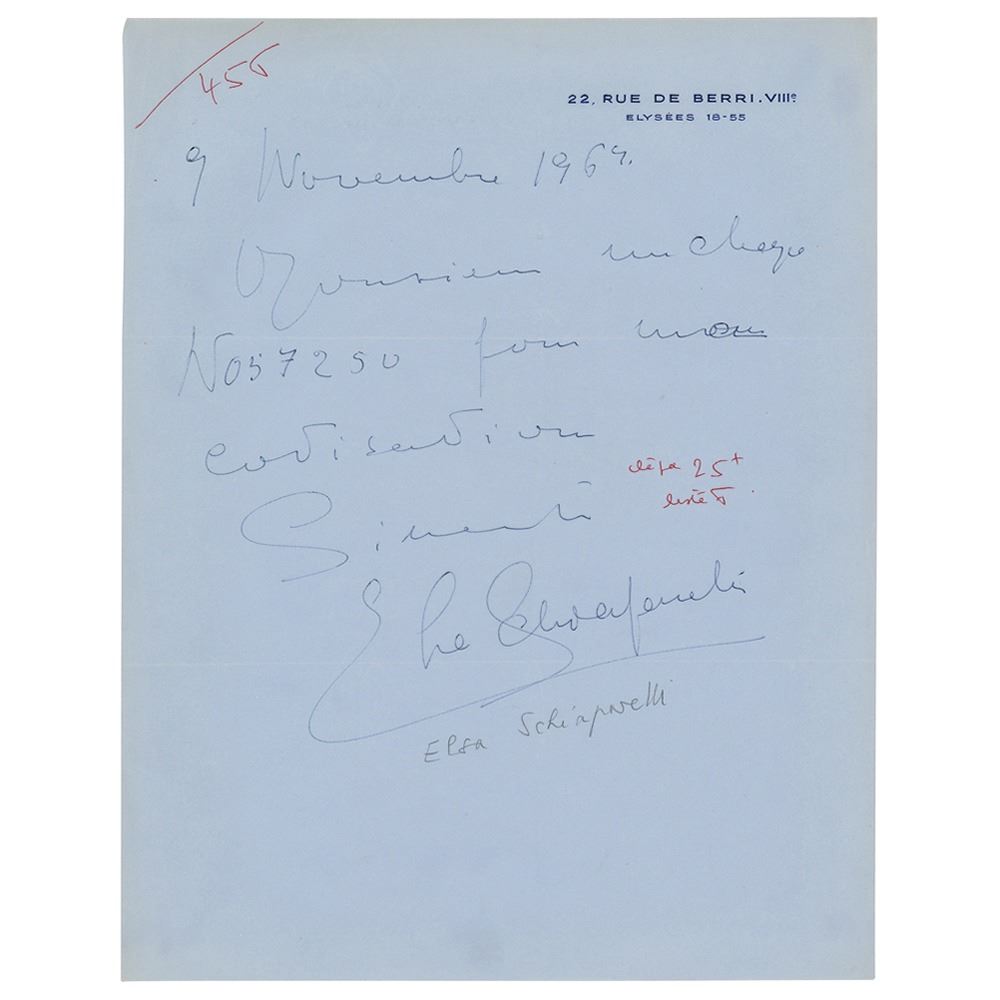 455
22, RUE DE BERRI. VIIIe
ELYSÉES 18-55
9 Novembre 1964.
Monsieur un cheque
No 57250 pour ma
cotisation
déja 25+
liste 5
Sincerité
Elsa Schiaparelli
Elsa Schiaparelli